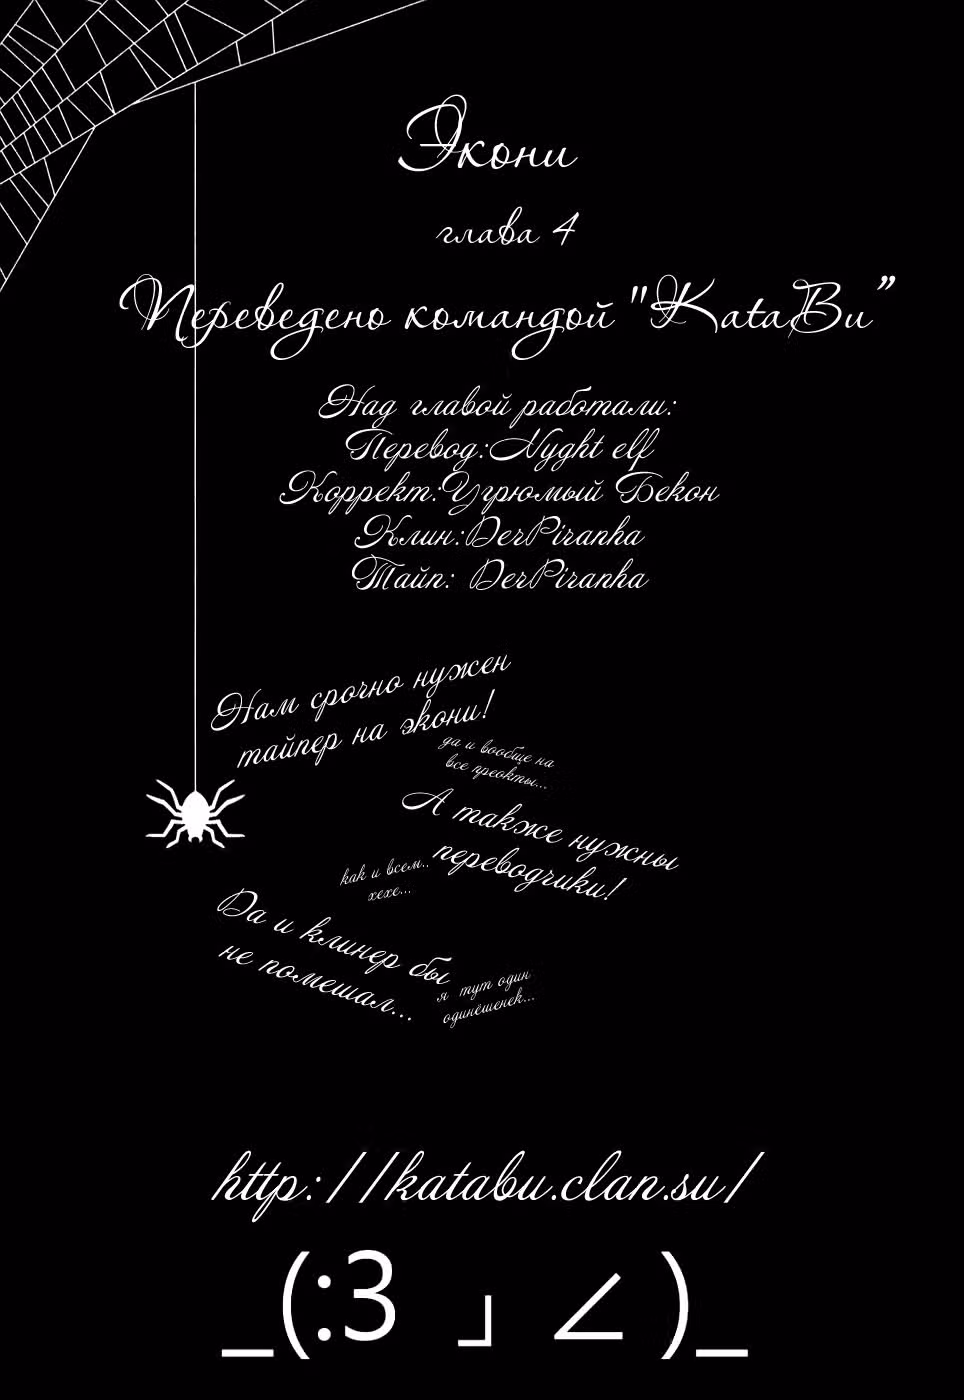 Экони
глава 4
Переведено командой "KataBu"
Над главой работали:
Перевод:Nyght elf
Коррект:Угрюмый Бекон
Клин:DerPiranha
Тайп: DerPiranha
Нам срочно нужен
тайпер на экони!
да и вообще на
все преокты...
А также нужны
переводчики!
как и всем..
хехе...
Да и клинер бы
не помешал...
я тут один
одинёшенек...
http://katabu.clan.su/
_(:3 」∠ )_